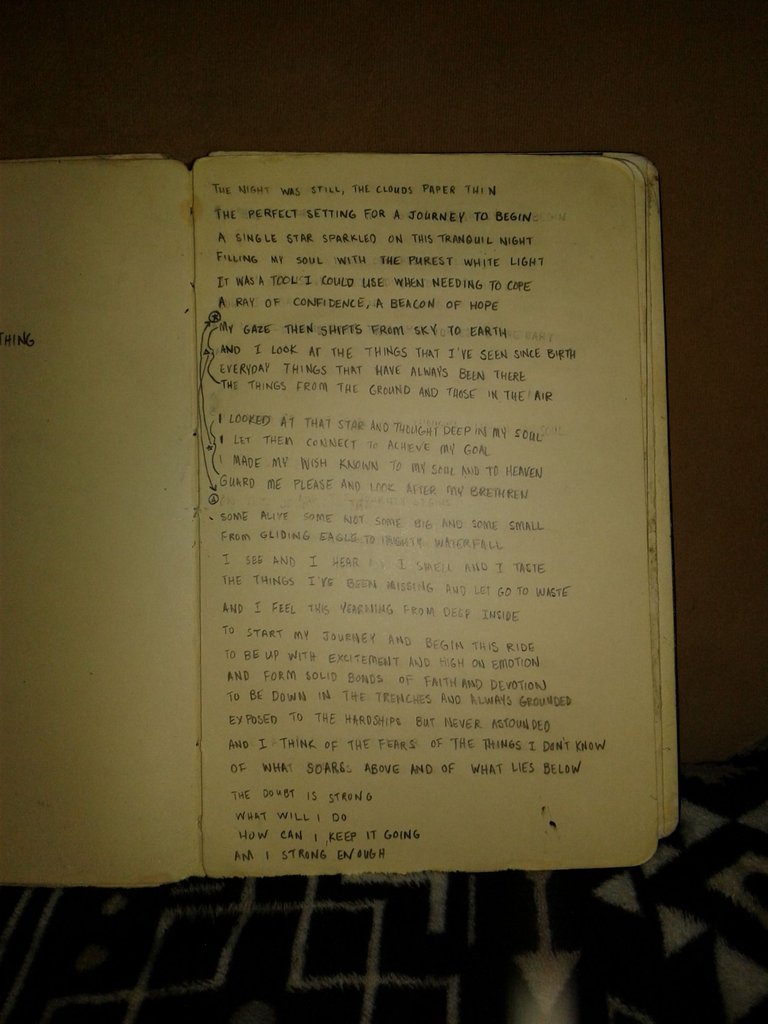 THING
THE NIGHT WAS STILL, THE CLOUDS PAPER THIN
THE PERFECT SETTING FOR A JOURNEY TO BEGIN
A SINGLE STAR SPARKLED ON THIS TRANQUIL NIGHT
FILLING MY SOUL WITH THE PUREST WHITE LIGHT
IT WAS A TOOL I COULD USE WHEN NEEDING TO COPE
A RAY OF CONFIDENCE, A BEACON OF HOPE
MY GAZE THEN SHIFTS FROM SKY TO EARTH
AND I LOOK AT THE THINGS THAT I'VE SEEN SINCE BIRTH
EVERYDAY THINGS THAT HAVE ALWAYS BEEN THERE
THE THINGS FROM THE GROUND AND THOSE IN THE AIR
I LOOKED AT THAT STAR AND THOUGHT DEEP IN MY SOUL
I LET THEM CONNECT TO ACHIEVE MY GOAL
I MADE MY WISH KNOWN TO MY SOUL AND TO HEAVEN
GUARD ME PLEASE AND LOOK AFTER MY BRETHREN
SOME ALIVE SOME NOT SOME BIG AND SOME SMALL
FROM GLIDING EAGLE TO MIGHTY WATERFALL
I SEE AND I HEAR I SMELL AND I TASTE
THE THINGS I'VE BEEN MISSING AND LET GO TO WASTE
AND I FEEL THIS YEARNING FROM DEEP INSIDE
TO START MY JOURNEY AND BEGIN THIS RIDE
TO BE UP WITH EXCITEMENT AND HIGH ON EMOTION
AND FORM SOLID BONDS OF FAITH AND DEVOTION
TO BE DOWN IN THE TRENCHES AND ALWAYS GROUNDED
EXPOSED TO THE HARDSHIPS BUT NEVER ASTOUNDED
AND I THINK OF THE FEARS OF THE THINGS I DON'T KNOW
OF WHAT SOARS ABOVE AND OF WHAT LIES BELOW
THE DOUBT IS STRONG
WHAT WILL I DO
HOW CAN I KEEP IT GOING
AM I STRONG ENOUGH